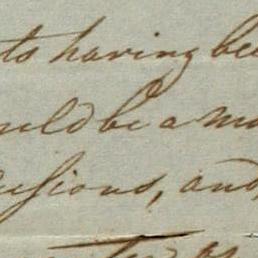 ts having bee
ould be a m
usions, and